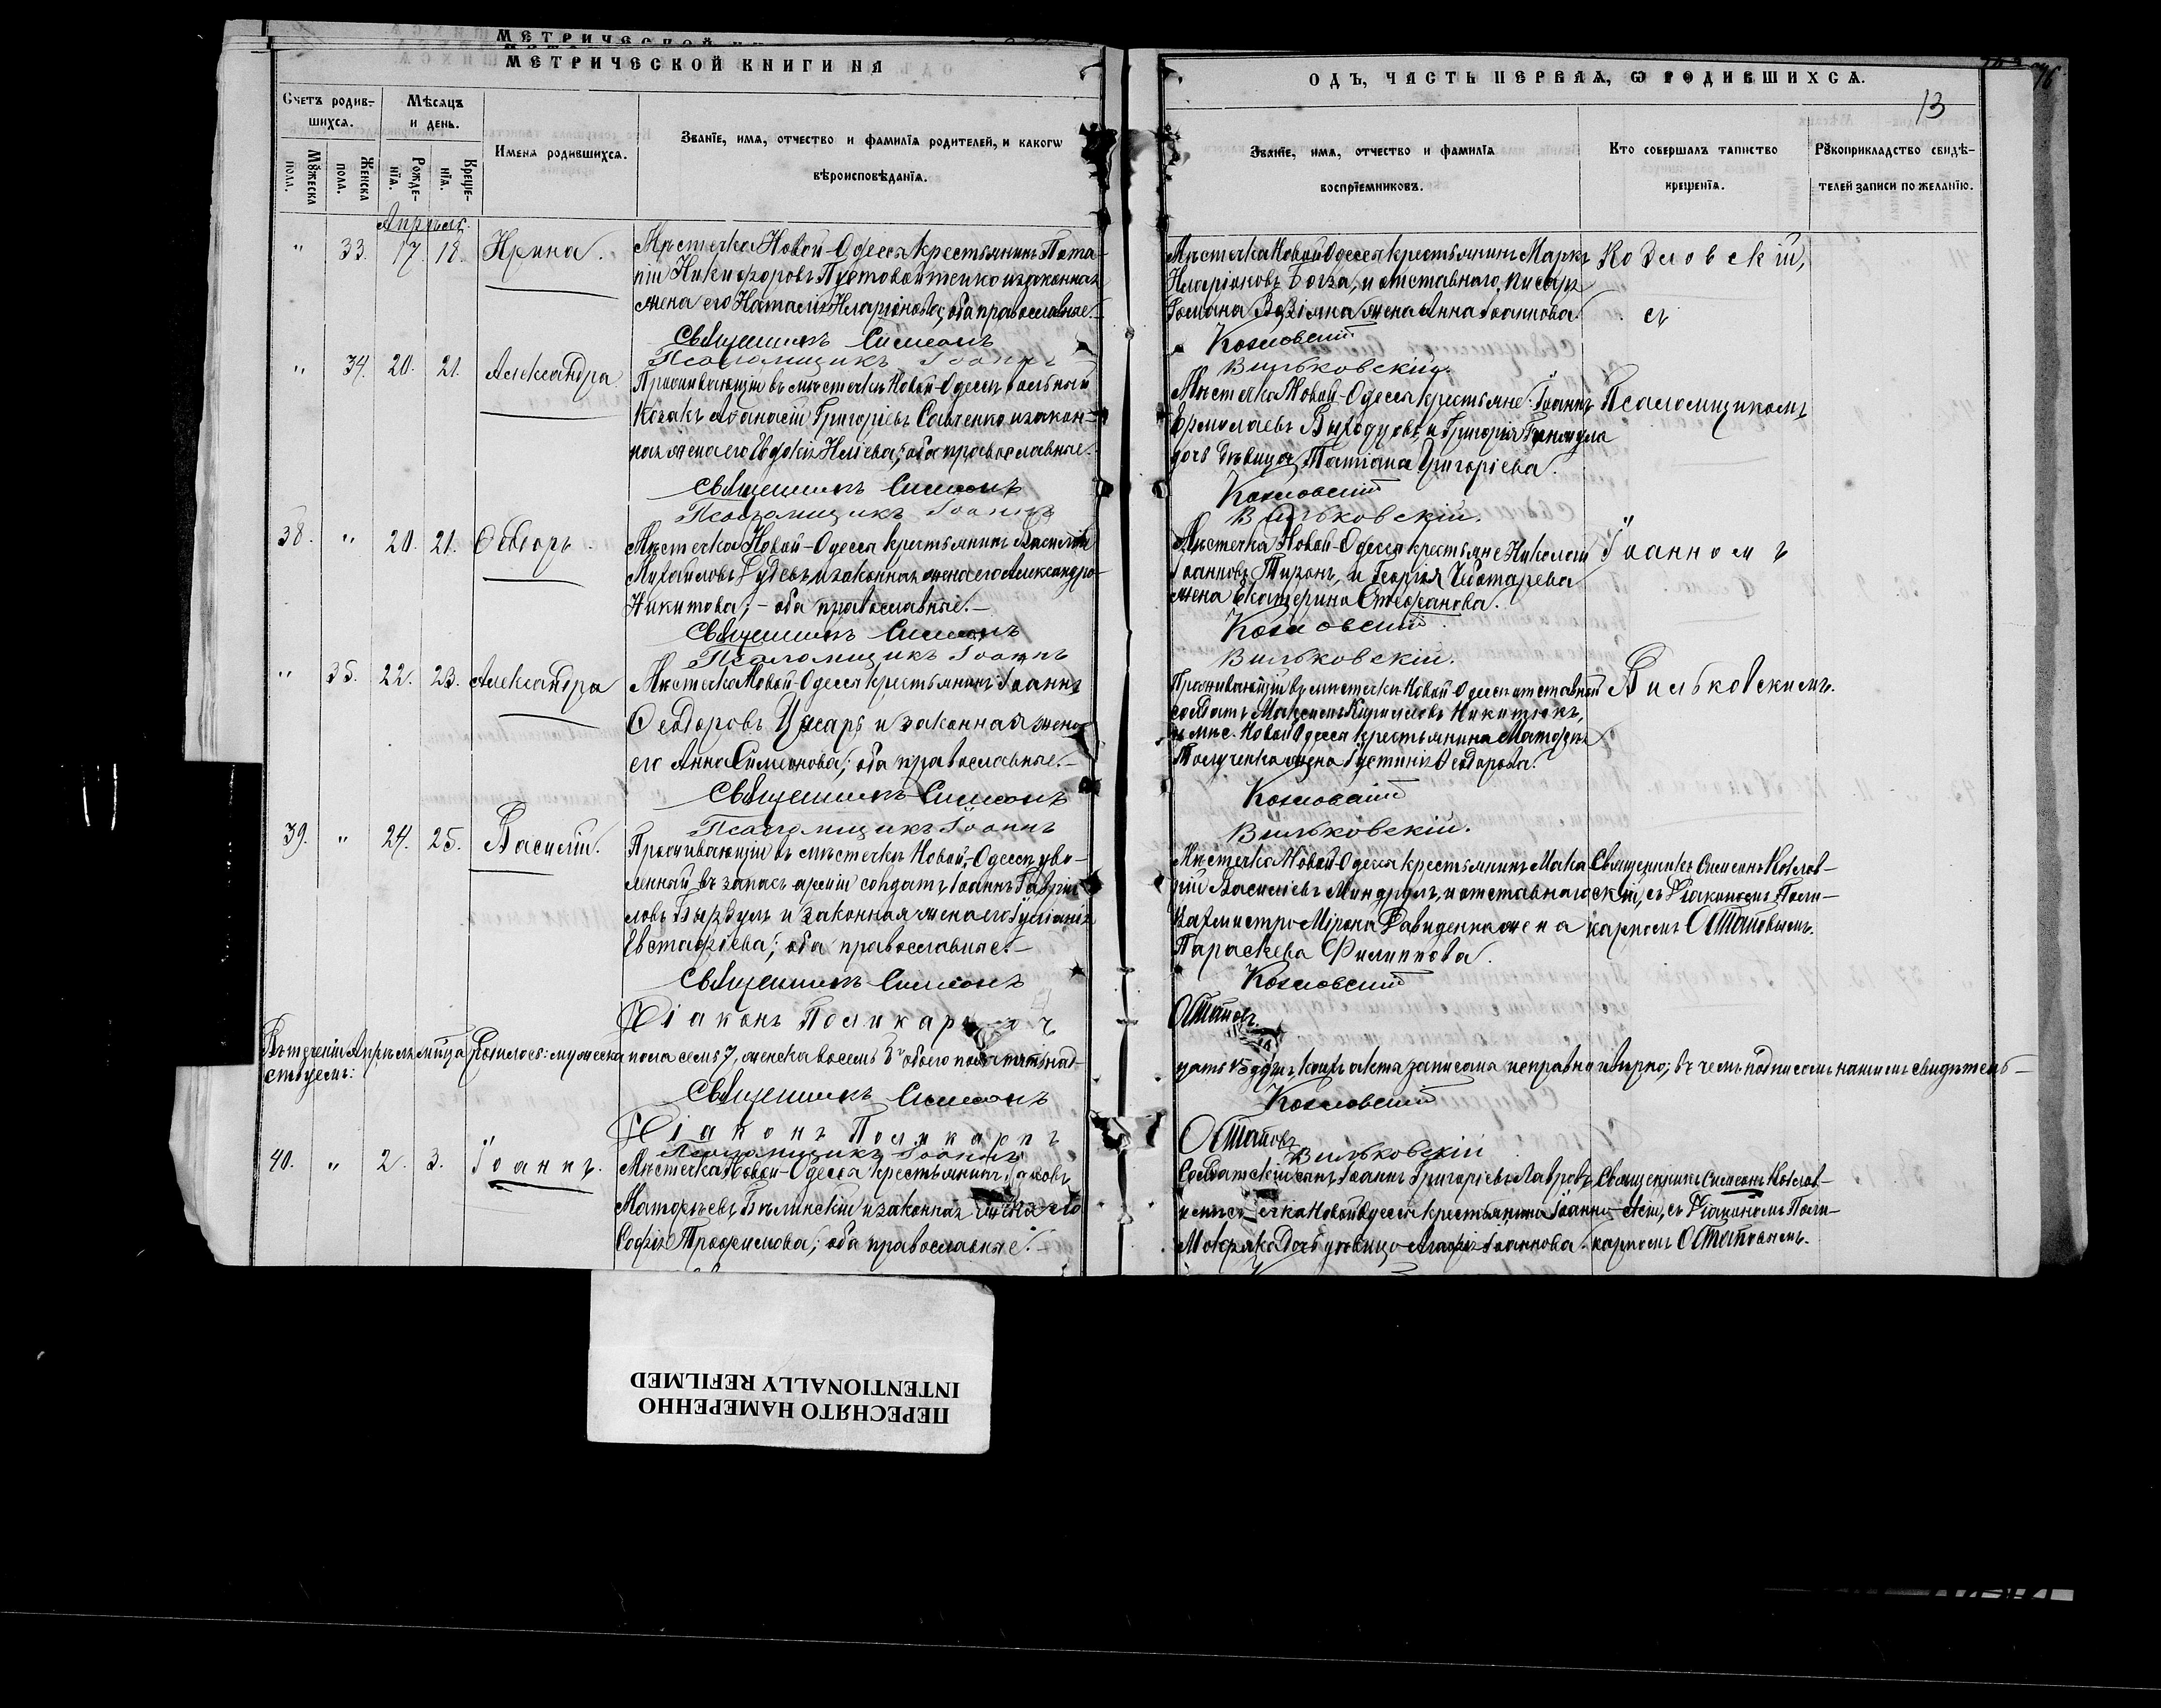 МЕТРИЧЕСКОЙ КНИГИ НА
ОДЪ, ЧАСТЬ ПЕРВАЯ, Ѡ РОДИВШИХСЯ.
13
Счетъ родив-
шихся.
Мѣсяцъ
и день.
Имена родившихся.
Званїе, имя, отчество и фамилїя родителей, и какогѡ
вѣроисповѣданїя.
Званїе, имя, отчество и фамилїя
воспрїемниковъ.
Кто совершалъ таинство
крещенїя.
Рꙋкоприкладство свидѣ-
телей записи по желанїю.
Мꙋжеска
пола.
Женска
пола.
Рожде-
нїя.
Креще-
нїя.
Апрѣль.
" 33. 17. 18. Ирина.
Мѣстечка Новой-Одессы крестьянинъ Пота-
пій Никифоровъ Пустовойтенко и законная
жена его Наталія Иларіонова, оба православные.
Священникъ Симеонъ
Псаломщикъ Іоаннъ
Мѣстечка Новой Одессы крестьянинъ Маркъ
Иларіоновъ и отставнаго писаря
Романа жена Анна Іоаннова
Козловскій
Вильковскій.
Козловскій,
съ
" 34. 20. 21. Александра
Проживающій въ мѣстечкѣ Новой-Одессѣ вольный
козакъ Аѳанасій Григоріевъ Савченко и закон-
ная жена его Евдокія Иліева; оба православные.
Священникъ Симеонъ
Псаломщикъ Іоаннъ
Мѣстечка Новой-Одессы крестьяне: Іоаннъ
Ермолаевъ и Григорія
дочь дѣвица Татіана Григоріева.
Козловскій
Вильковскій.
Псаломщикомъ
38. " 20. 21. Ѳеодоръ.
Мѣстечка Новой-Одессы крестьянинъ Василій
Михаиловъ и законная жена его Александра
Никитова; - оба православные.-
Священникъ Симеонъ
Псаломщикъ Іоаннъ
Мѣстечка Новой-Одессы крестьяне Николай
Іоанновъ Тиронъ, и Георгія Чеботарева
жена Екатерина Стефанова.
Козловскій
Вильковскій.
Іоанномъ
" 35. 22. 23. Александра
Мѣстечка Новой-Одессы крестьянинъ Іоаннъ
Ѳеодоровъ и законная жена
его Анна Симеонова; оба православные.-
Священникъ Симеонъ
Псаломщикъ Іоаннъ
Проживающій въ мѣстечкѣ Новой Одессѣ отставной
солдатъ Максимъ Кирилловъ Никитюкъ,
и мѣс. Новой Одессы крестьянина Матѳея
жена Іустинія Ѳеодорова.
Козловскій
Вильковскій.
Вильковскимъ.
39. " 24. 25. Василій.
Проживающій въ мѣстечкѣ Новой-Одессѣ, уво-
ленный въ запасъ арміи солдатъ Іоаннъ Гаврі-
ловъ и законная жена его Іуліанія
Евстафіева; оба православные.-
Священникъ Симеонъ
Діаконъ Поликарпъ
Мѣстечка Новой-Одессы крестьянинъ Мака-
рій Василіевъ и отставнаго
вахмистра Мірона Давиденка жена
Параскева Филиппова.
Козловскій
Остаповъ.
Священникъ Симеонъ Козлов-
скій, съ Діакономъ Поли-
карпомъ Остаповымъ.
Въ теченіи Апрѣля мѣсца родилось: мужеска пола семь 7, женска восемь 8 обоего пола пятьнад-
цать 15 душъ акты записаны исправно и вѣрно; въ чемъ подписомъ нашимъ свидѣтель-
ствуемъ:
Священникъ Симеонъ
Козловскій
Діаконъ Поликарпъ
Остаповъ
Псаломщикъ Іоаннъ
Вильковскій
40. " 2. 3. Іоаннъ.
Мѣстечка Новой-Одессы крестьянинъ Іаковъ
Матѳеевъ Бѣлинскій и законная жена его
Софія Трофимова; оба православные.-
Солдатскій сынъ Іоаннъ Григоріевъ Лавровъ,
и мѣстечка Новой Одессы крестьянина Іоанна
Мокряка дочь дѣвица Агафія Іоаннова.
Священникъ Симеонъ Козлов-
скій, съ Діакономъ Поли-
карпомъ Остаповымъ.
ПЕРЕСНЯТО НАМЕРЕННО
INTENTIONALLY REFILMED